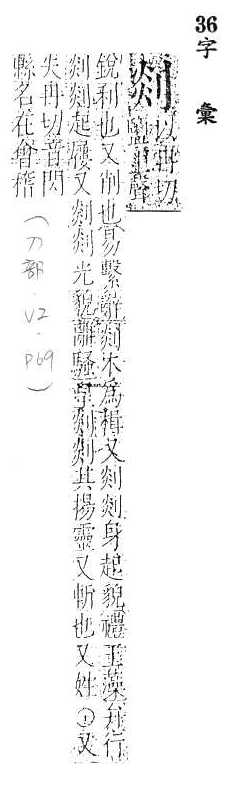 36字彙
剡 以冉切
鹽上聲
銳利也又削也易繫辭剡木為楫又剡剡身起貌禮玉藻弁行
剡剡起屨又剡剡光貌離騷皇剡剡其揚靈又斬也又姓○又
失冉切音閃
縣名在會稽
(刀部.V2.P69)